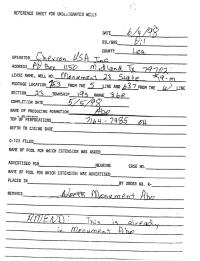 REFERENCE SHEET FOR UNDESIGNATED WELLS
DATE 6/4/98
OIL/GAS oil
COUNTY Lea
OPERATOR Chevron USA Inc
ADDRESS PO Box 1150 Midland Tx 79702
LEASE NAME, WELL NO. Monument 23 State
FOOTAGE LOCATION FROM THE S LINE AND 637 FROM THE W LINE
SECTION 23 TOWNSHIP 19s RANGE 36e
COMPLETION DATE 5/5/98
NAME OF PRODUCING FORMATION Abo
TOP OF PERFORATIONS 7164-7385
DEPTH TO CASING SHOE
C-123 FILED
NAME OF POOL FOR WHICH EXTENSION WAS ASKED
ADVERTISED FOR HEARING CASE NO.
NAME OF POOL FOR WHICH EXTENSION WAS ADVERTISED
PLACED IN BY ORDER NO. R-
REMARKS North Monument Abo
AMEND: This is already
in Monument Abo